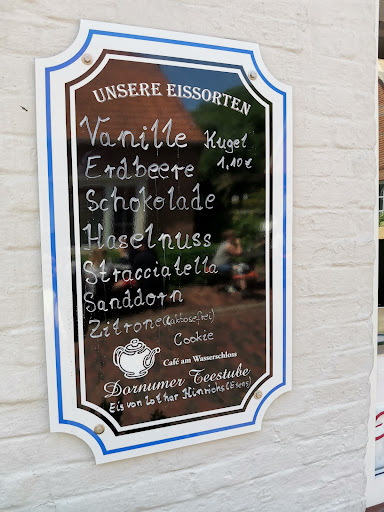 UNSERE EISSORTEN
Vanille Kugel
Erdbeere 1,10 €
Schokolade
Haselnuss
Stracciatella
Sanddorn
Zitrone (Laktosefrei)
Cookie
Café am Wasserschloss
Dornumer Teestube
Eis von Lothar Hinrichs (Esens)